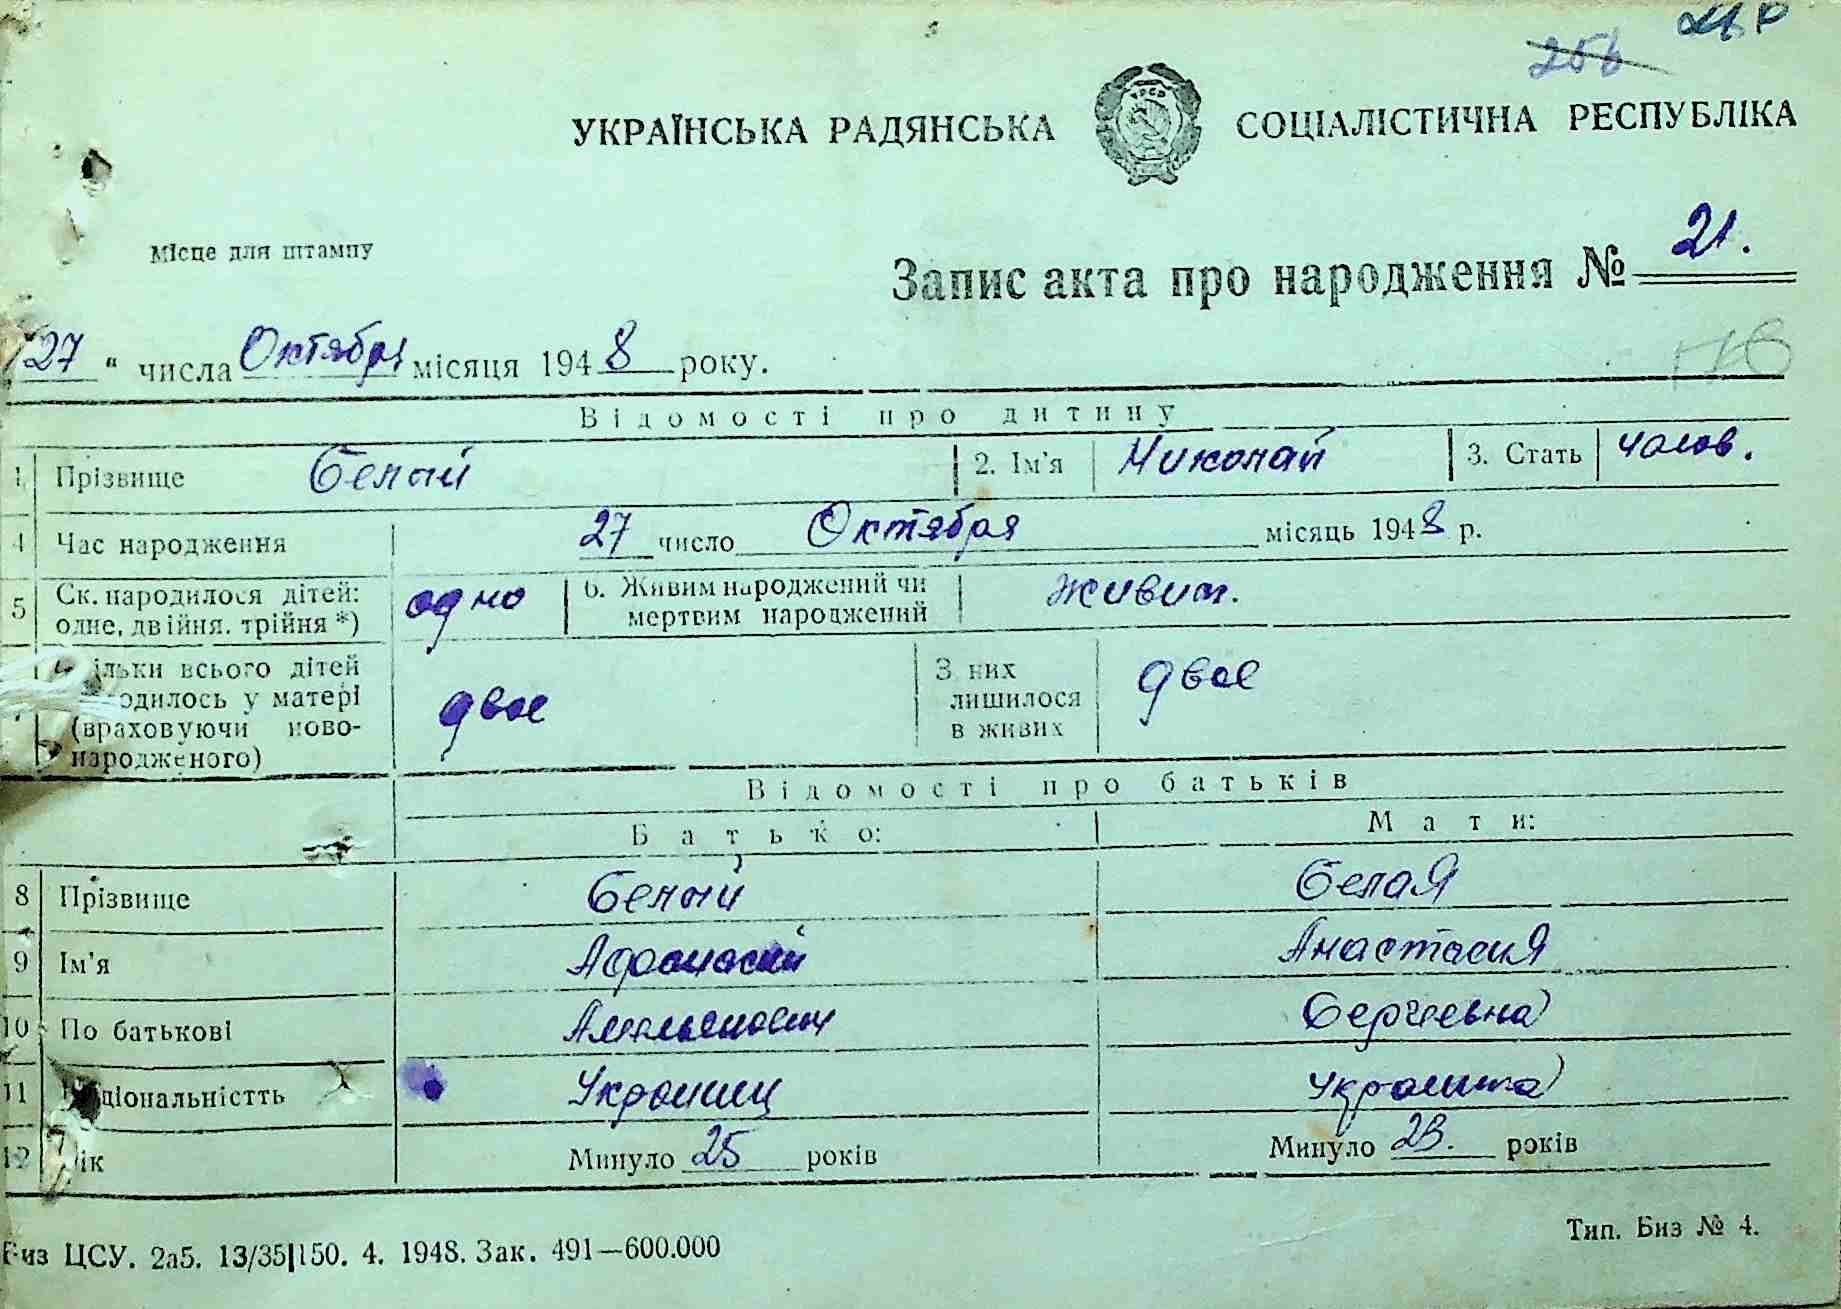 256
УКРАЇНСЬКА РАДЯНСЬКА СОЦІАЛІСТИЧНА РЕСПУБЛІКА
Місце для штампу
Запис акта про народження № 21.
27 " числа Октября місяця 1948 року.
Відомості про дитину
1 Прізвище Белый 2. Ім'я Николай 3. Стать
4 Час народження 27 число Октября місяць 1948 р.
5 Ск. народилося дітей: одно 6. Живим народжений чи живым.
одне, двійня, трійня *) мертвим народжений
ільки всього дітей З них
одилось у матері двое лишилося двое
(враховуючи ново- в живих
народженого)
Відомості про батьків
Батько: Мати:
8 Прізвище Белый Белая
9 Ім'я Афанасий Анастасия
10 По батькові Амельянович Сергеевна
11 ціональністть Украинец Украинка
12 ік Минуло 25 років Минуло 23. років
Биз ЦСУ. 2а5. 13/35|150. 4. 1948. Зак. 491—600.000
Тип. Биз № 4.